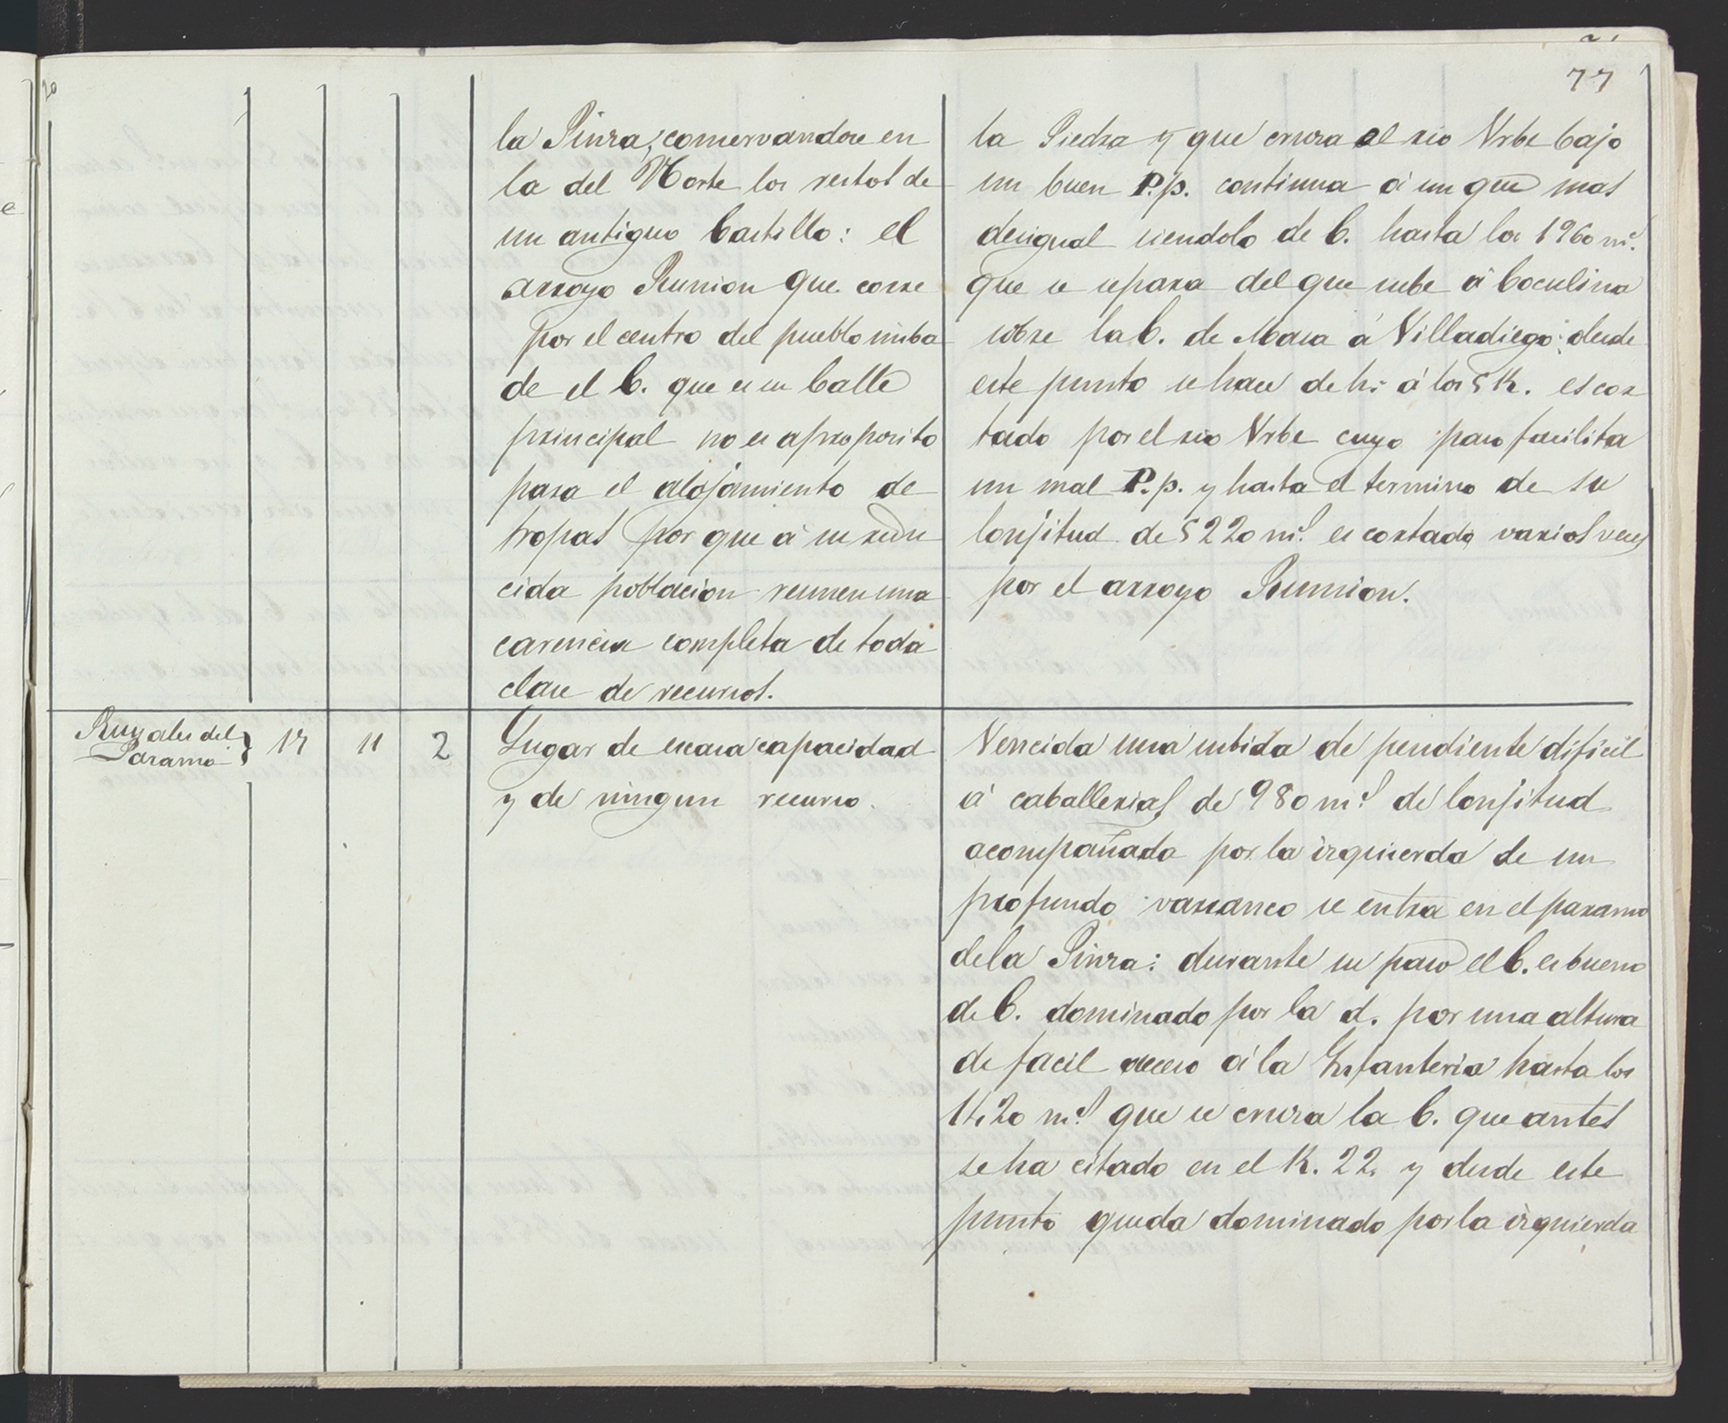 77
la Pinza, conservandose en
la del Norte los restos de
un antiguo Castillo: el
arroyo Reunion que corre
por el centro del pueblo
de el C. que es su Calle
principal no es aproposito
para el alojamiento de
tropas por que á su redu
cida poblacion reunen una
carencia completa de toda
clase de recursos.
la Piedra y que cruza el rio Urbe bajo
un buen P.p. continua á un que mas
desigual siendolo de C. hasta los 1960 ms.
que se separa del que sube á Coculina
sobre la C. de Masa á Villadiego: desde
este punto se hace de h. á los 5 K. es cor
tado por el rio Urbe cuyo paso facilita
un mal P.p. y hasta el termino de su
lonjitud de 5220 ms. es cortado varios veces
por el arroyo Reunion.
Ruyales del
Paramo
} 17 11 2
Lugar de escasa capacidad
y de ningun recurso.
Vencida una subida de pendiente dificil
á caballerias de 980 ms. de lonjitud
acompañada por la izquierda de un
profundo varranco se entra en el paramo
de la Pinza: durante su paso el C. es bueno
de C. dominado por la d. por una altura
de facil acceso á la Infanteria hasta los
1420 ms. que se cruza la C. que antes
se ha citado en el K. 22. y desde este
punto queda dominado por la izquierda